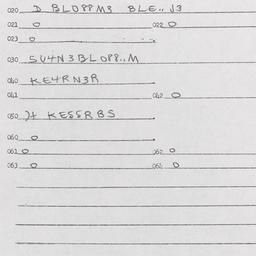 020 D BLOPPM3 BLE.. J3
021 O 022 O
023 O
030 SU4N3BLOPP..M
040 KE4RN3R
041 042 O
050 J4 KESSRBS
060 O
061 O 062 O
063 O 064 O